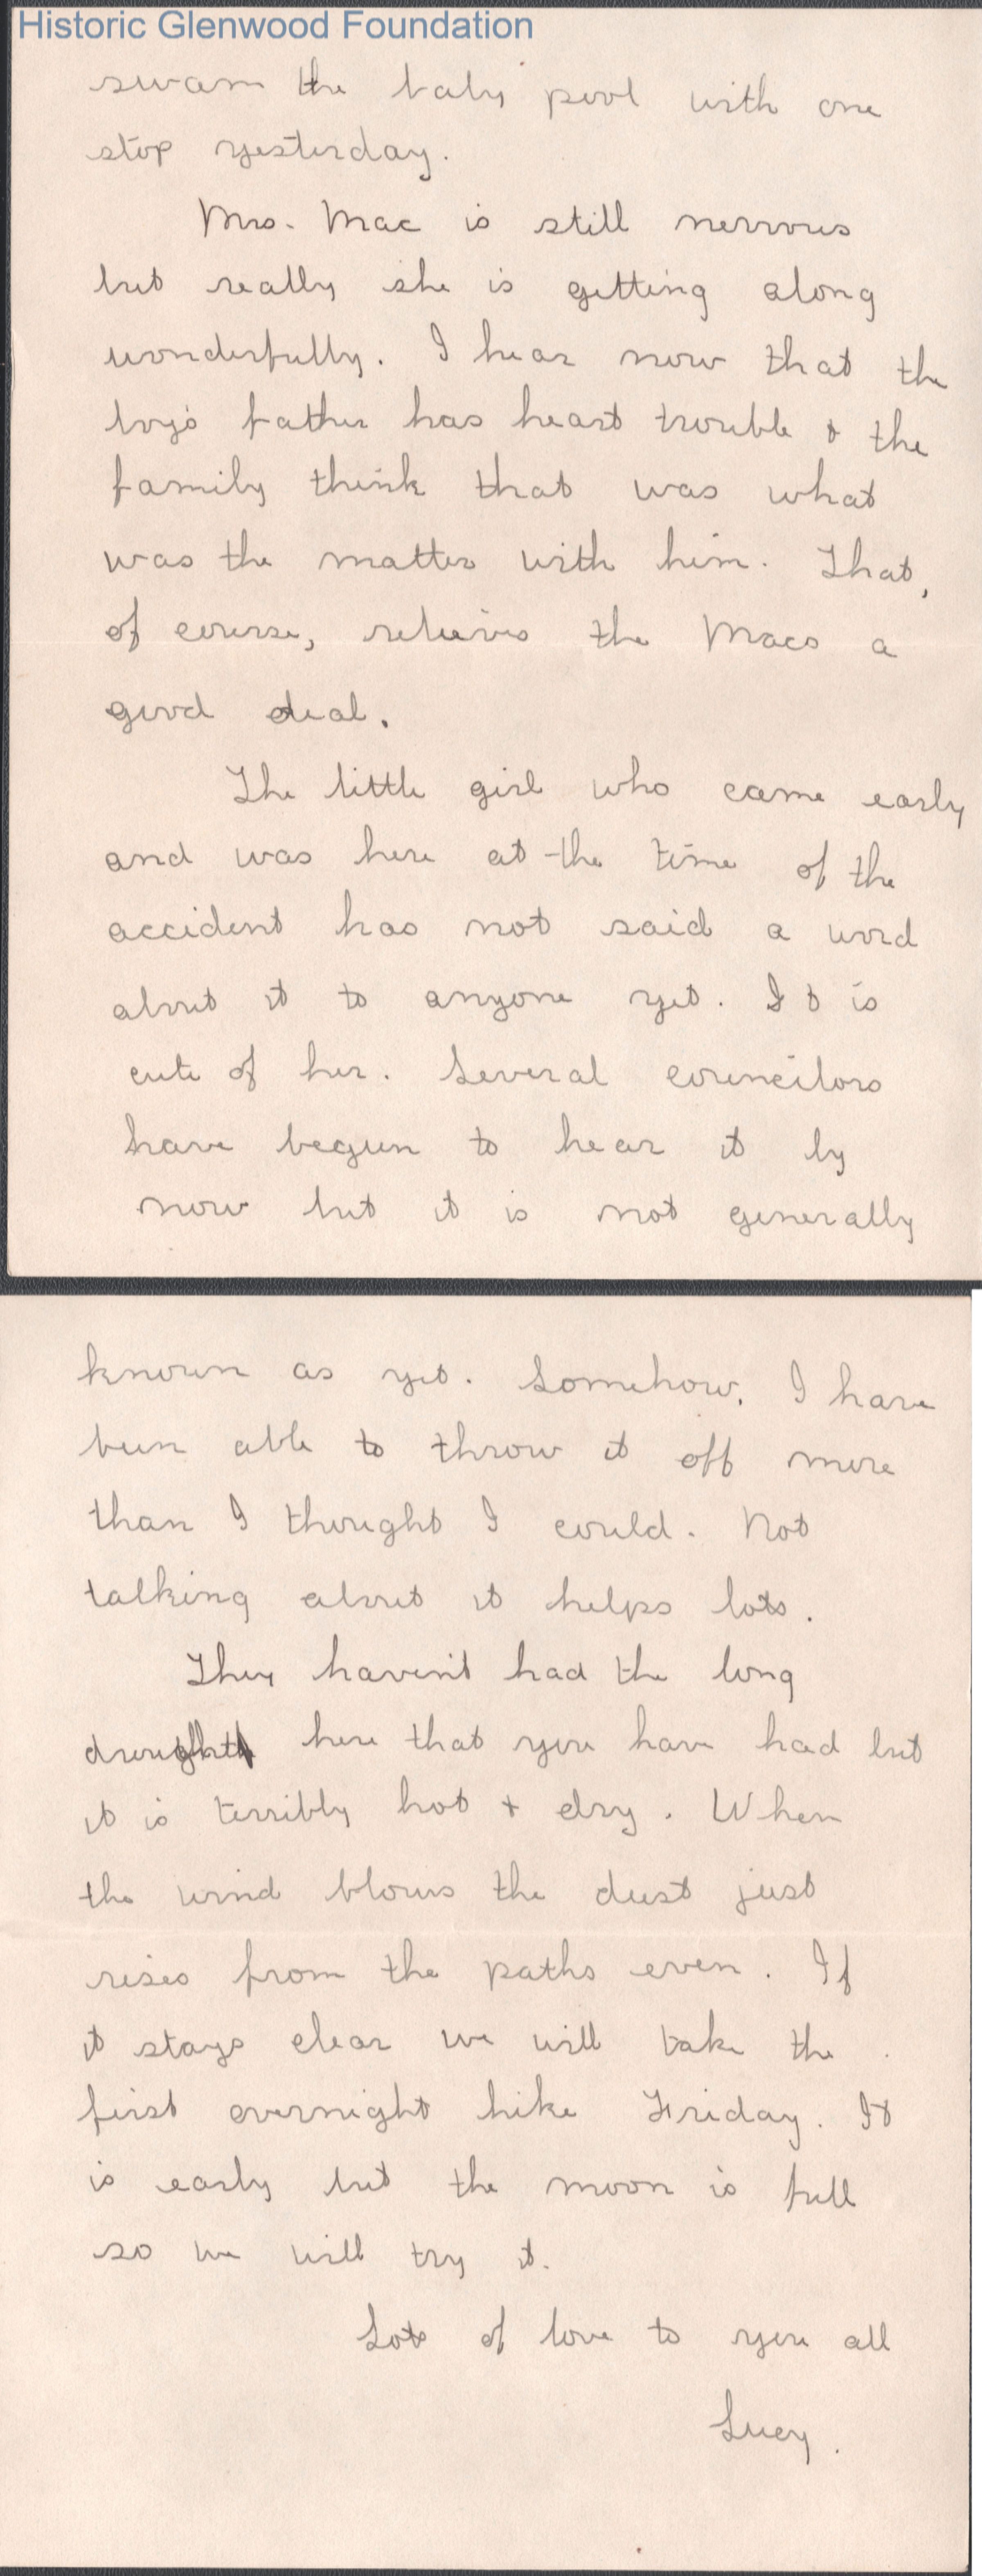 Historic Glenwood Foundation
swam the baby pool with one
stop yesterday.
Mrs. Mac is still nervous
but really she is getting along
wonderfully. I hear now that the
boy's father has heart trouble & the
family think that was what
was the matter with him. That,
of course, relieves the Macs a
good deal.
The little girl who came early
and was here at the time of the
accident has not said a word
about it to anyone yet. It is
cute of her. Several councilors
have begun to hear it by
now but it is not generally
known as yet. Somehow, I have
been able to throw it off more
than I thought I could. Not
talking about it helps lots.
They haven't had the long
drought here that you have had but
it is terribly hot & dry. When
the wind blows the dust just
rises from the paths even. If
it stays clear we will take the
first overnight hike Friday. It
is early but the moon is full
so we will try it.
Lots of love to you all
Lucy.